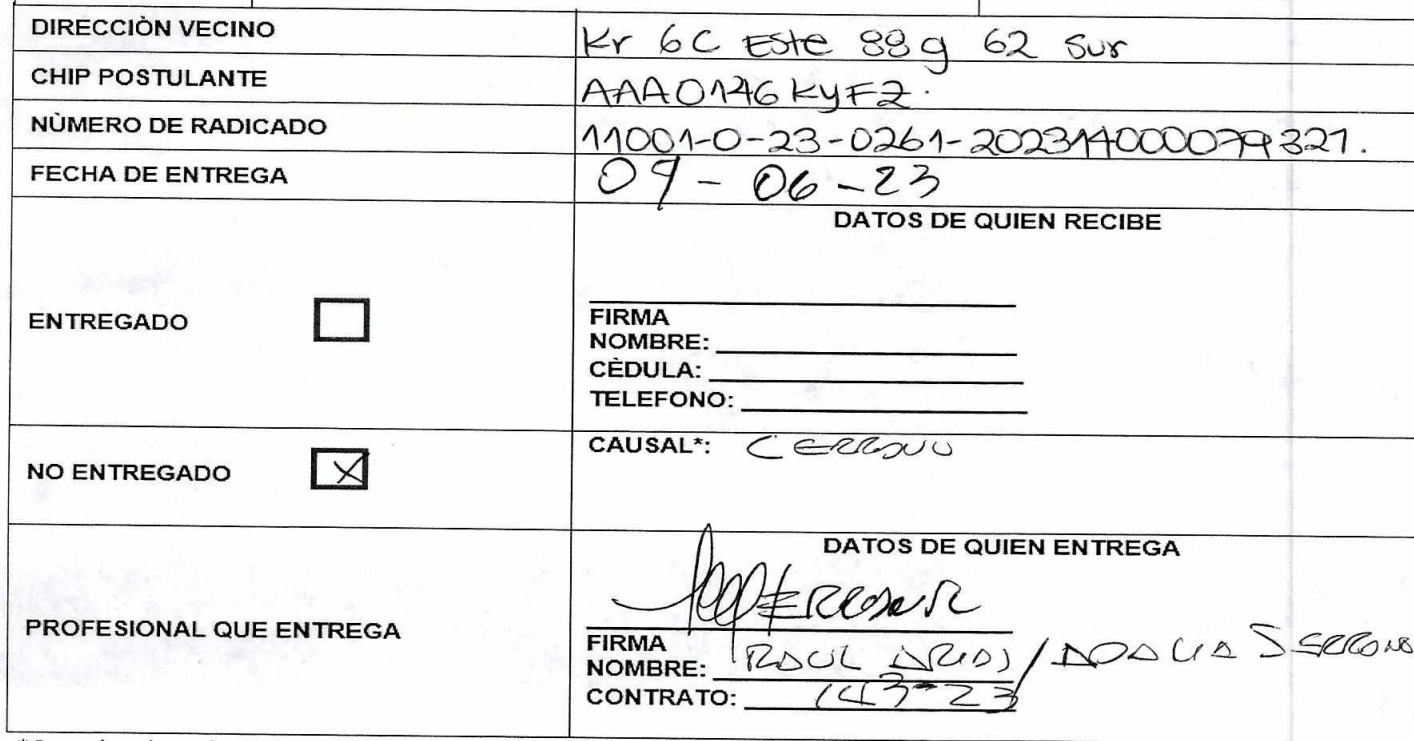 DIRECCIÒN VECINO Kr 6C Este 88g 62 Sur
CHIP POSTULANTE AAA0146KYFZ.
NÙMERO DE RADICADO 11001-0-23-0261-202314000079321.
FECHA DE ENTREGA 09-06-23
DATOS DE QUIEN RECIBE
ENTREGADO
FIRMA
NOMBRE:
CÈDULA:
TELEFONO:
NO ENTREGADO X
CAUSAL*: CERRADO
DATOS DE QUIEN ENTREGA
PROFESIONAL QUE ENTREGA
FIRMA
NOMBRE: RAUL ARIAS / ADALIA SERRANO
CONTRATO: 143-23